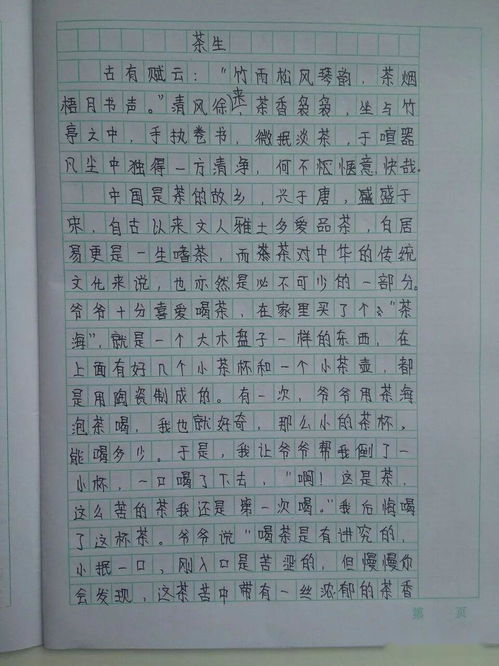 茶生
古有赋云：“竹雨松风琴韵，茶烟
梧月书声。”清风徐来，茶香袅袅，坐与竹
亭之中，手执卷书，微抿淡茶，于喧嚣
凡尘中独得一方清净，何不恇惬意，快哉。
中国是茶的故乡，兴于唐，盛盛于
宋，自古以来文人雅士多爱品茶，白居
易更是一生嗜茶，而茶对中华的传统
文化来说，也亦然是必不可少的一部分。
爷爷十分喜爱喝茶，在家里买了个“茶
海”，就是一个大木盘子一样的东西，在
上面有好几个小茶杯和一个小茶壶，都
是用陶瓷制成的。有一次，爷爷用茶海
泡茶喝，我也就好奇，那么小的茶杯，
能喝多少。于是，我让爷爷帮我倒了一
小杯，一口喝了下去，“啊！这是茶，
这么苦的茶我还是第一次喝。”我后悔喝
了这杯茶。爷爷说“喝茶是有讲究的，
小抿一口，刚入口是苦涩的，但慢慢你
会发现，这茶苦中带有一丝浓郁的茶香
第 页